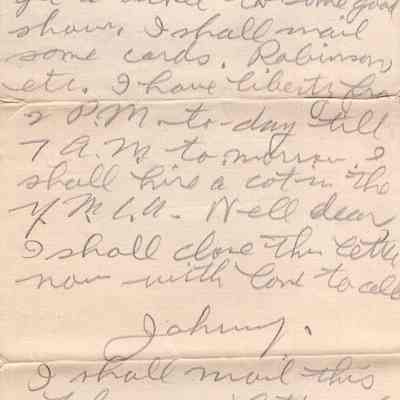 get a ticket to some good
show, I shall mail
some cards. Robinson,
etc. I have liberty fro
2 P.M. to-day till
7 A.M. tomorrow. I
shall hire a cot in the
Y.M.C.A. Well dear,
I shall close this lette
now with love to all
Johnny.
I shall mail this